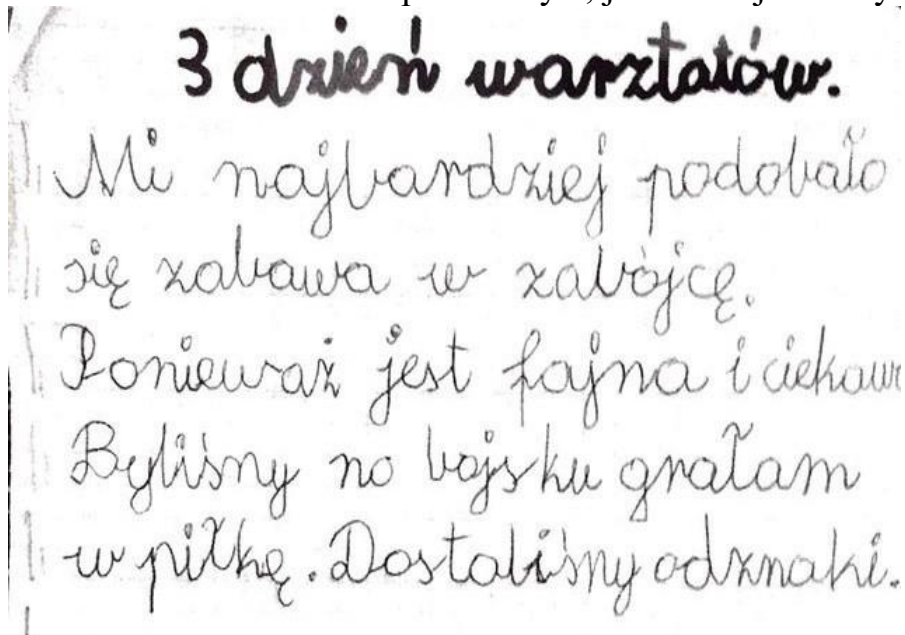 3 dzień warsztatów.
Mi najbardziej podobało
się zabawa w zabójcę.
Ponieważ jest fajna i ciekawa
Byliśmy na bojsku grałam
w piłkę. Dostaliśmy odznaki.